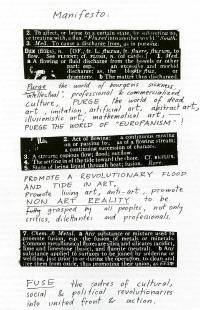 Manifesto:
2. To affect, or bring to a certain state, by subjecting to,
or treating with, a flux. "Fluxed into another world." South.
3. Med. To cause a discharge from, as in purging.
flux (flŭks), n. [OF., fr. L. fluxus, fr. fluere, fluxum, to
flow. See fluent; cf. flush, n. (of cards).] 1. Med.
a A flowing or fluid discharge from the bowels or other
part: esp., an excessive and morbid
discharge: as, the bloody flux, or
dysentery. b The matter thus discharged.
Purge the world of bourgeois sickness,
"intellectual", professional & commercialized
culture, PURGE the world of dead
art, imitation, artificial art, abstract art,
illusionistic art, mathematical art, —
PURGE THE WORLD OF "EUROPANISM"!
2. Act of flowing: a continuous moving
on or passing by, as of a flowing stream;
a continuing succession of changes.
3. A stream; copious flow; flood; outflow.
4. The setting in of the tide toward the shore. Cf. REFLUX.
5. State of being liquid through heat; fusion. Rare.
PROMOTE A REVOLUTIONARY FLOOD
AND TIDE IN ART,
Promote living art, anti-art, promote
NON ART REALITY to be
fully grasped by all peoples, not only
critics, dilettantes and professionals.
7. Chem. & Metal. a Any substance or mixture used to
promote fusion, esp. the fusion of metals or minerals.
Common metallurgical fluxes are silica and silicates (acidic),
lime and limestone (basic), and fluorite (neutral). b Any
substance applied to surfaces to be joined by soldering or
welding, just prior to or during the operation, to clean and
free them from oxide, thus promoting their union, as rosin.
FUSE the cadres of cultural,
social & political revolutionaries
into united front & action.